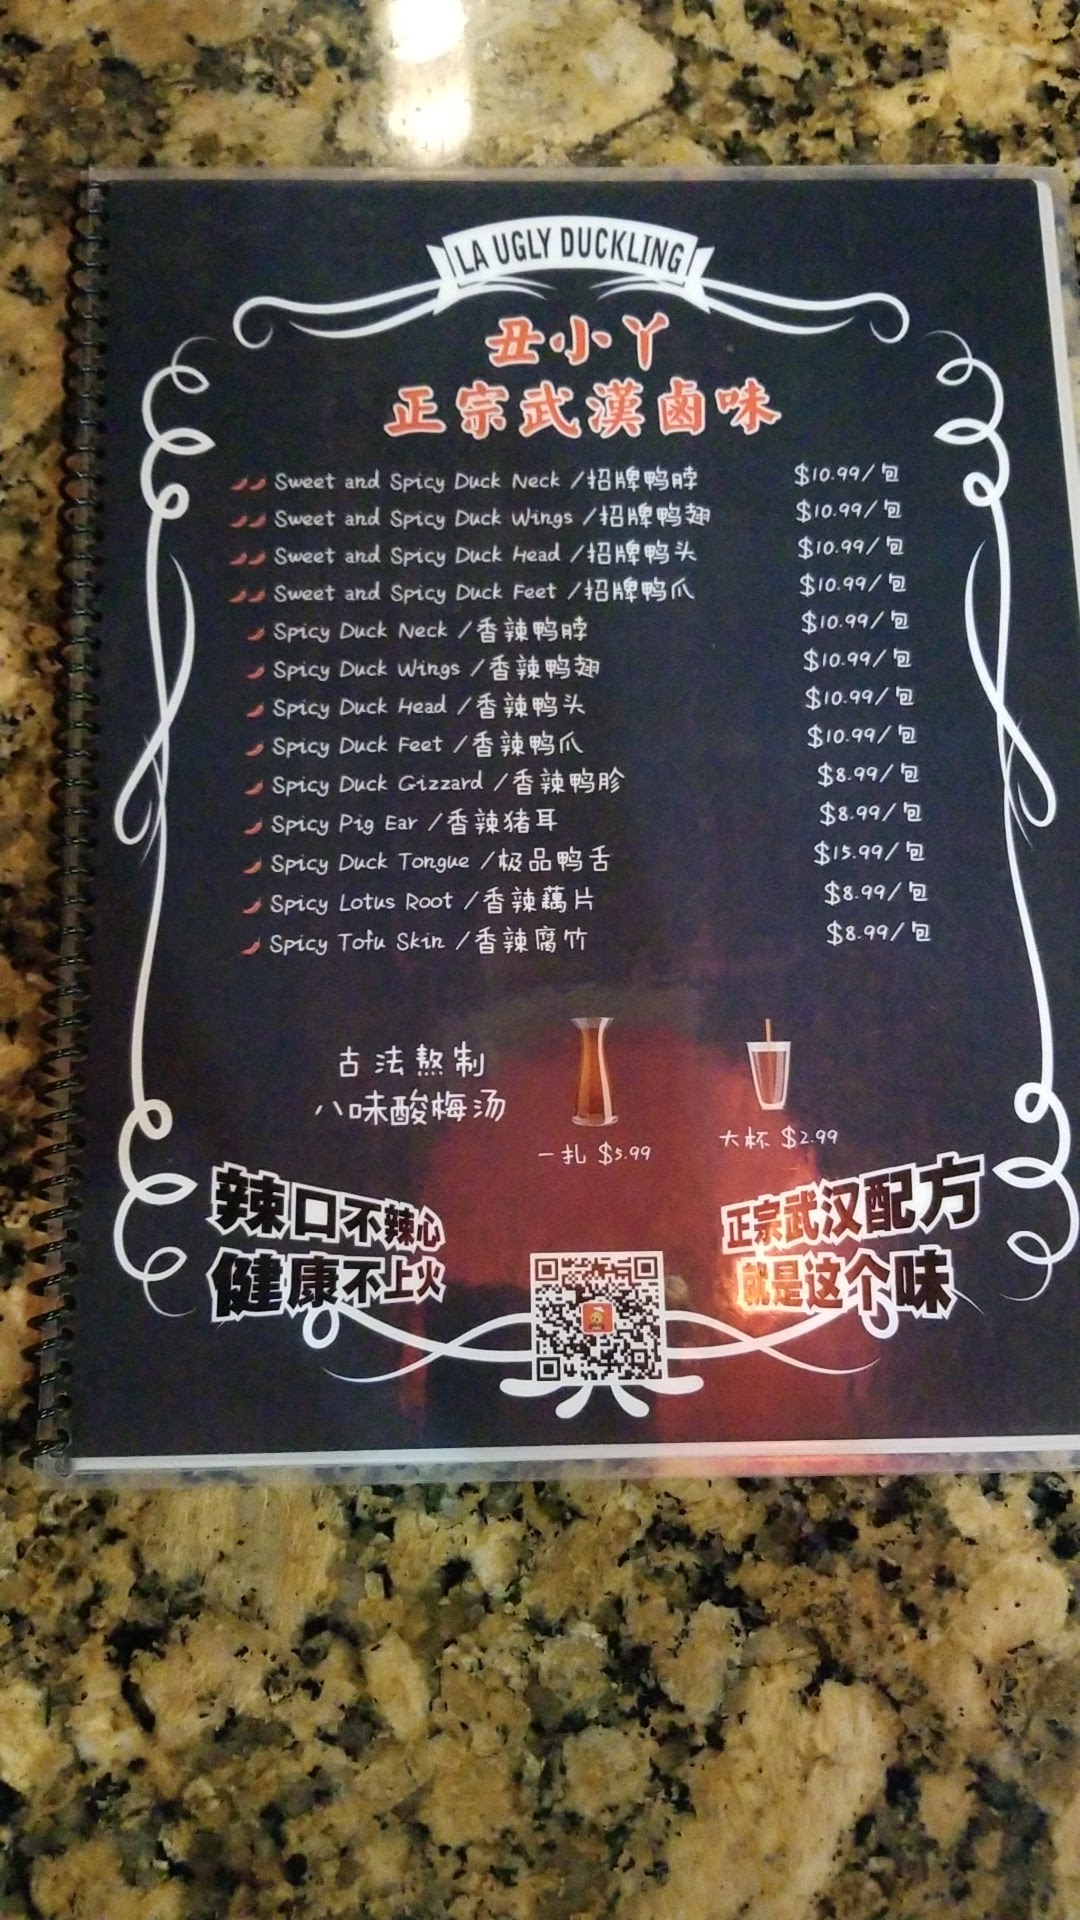 LA UGLY DUCKLING
丑小丫
正宗武漢鹵味
Sweet and Spicy Duck Neck /招牌鸭脖 $10.99/包
Sweet and Spicy Duck Wings /招牌鸭翅 $10.99/包
Sweet and Spicy Duck Head /招牌鸭头 $10.99/包
Sweet and Spicy Duck Feet /招牌鸭爪 $10.99/包
Spicy Duck Neck /香辣鸭脖 $10.99/包
Spicy Duck Wings /香辣鸭翅 $10.99/包
Spicy Duck Head /香辣鸭头 $10.99/包
Spicy Duck Feet /香辣鸭爪 $10.99/包
Spicy Duck Gizzard /香辣鸭胗 $8.99/包
Spicy Pig Ear /香辣猪耳 $8.99/包
Spicy Duck Tongue /极品鸭舌 $15.99/包
Spicy Lotus Root /香辣藕片 $8.99/包
Spicy Tofu Skin /香辣腐竹 $8.99/包
古法熬制
八味酸梅汤
一扎 $5.99
大杯 $2.99
辣口不辣心
健康不上火
正宗武汉配方
就是这个味